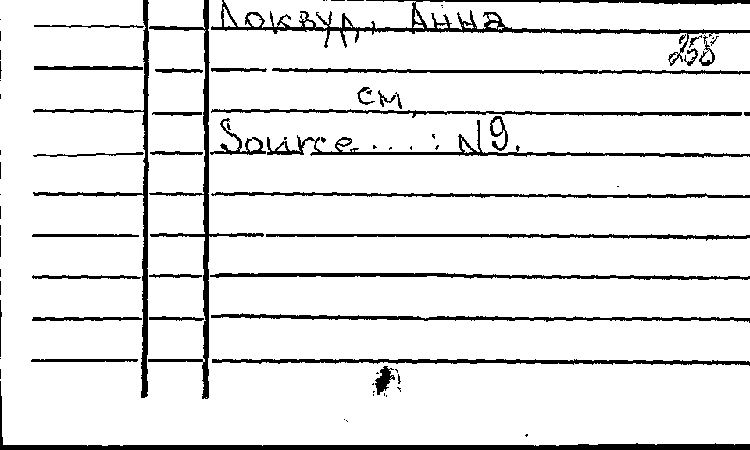 Локвуд, Анна
258
см.
Source ... : N9.